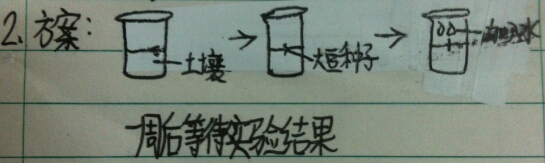 2. 方案: 土壤 → 大豆种子 → 加水
一周后等待实验结果